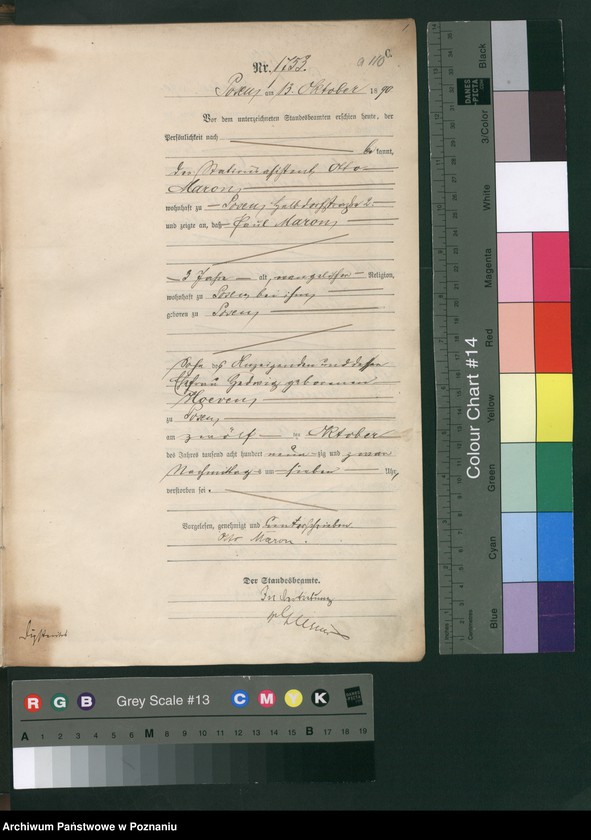 C.
Nr. 1753.
Posen, am 13. Oktober 1890
Vor dem unterzeichneten Standesbeamten erschien heute, der
Persönlichkeit nach
be kannt,
der Stationsassistent Otto
Maron,
wohnhaft zu Posen,
und zeigte an, daß Paul Maron,
3 Jahre alt, evangelischer Religion,
wohnhaft zu Posen, bei ihm,
geboren zu Posen,
Sohn des Anzeigenden und dessen
Ehefrau Hedwig geborenen
zu Posen,
am zwölf ten Oktober
des Jahres tausend acht hundert neun zig und zwar
Nachmittags um sieben Uhr,
verstorben sei.
Vorgelesen, genehmigt und unterschrieben
Otto Maron.
Der Standesbeamte.
In Vertretung
Diphteritis
Colour Chart #14
Black
3/Color
White
Magenta
Red
Yellow
Green
Cyan
Blue
DANES
PICTA
.COM
Inches
Centimetres
R G B Grey Scale #13 C M Y K
A 1 2 3 4 5 6 M 8 9 10 11 12 13 14 15 B 17 18 19
Archiwum Państwowe w Poznaniu